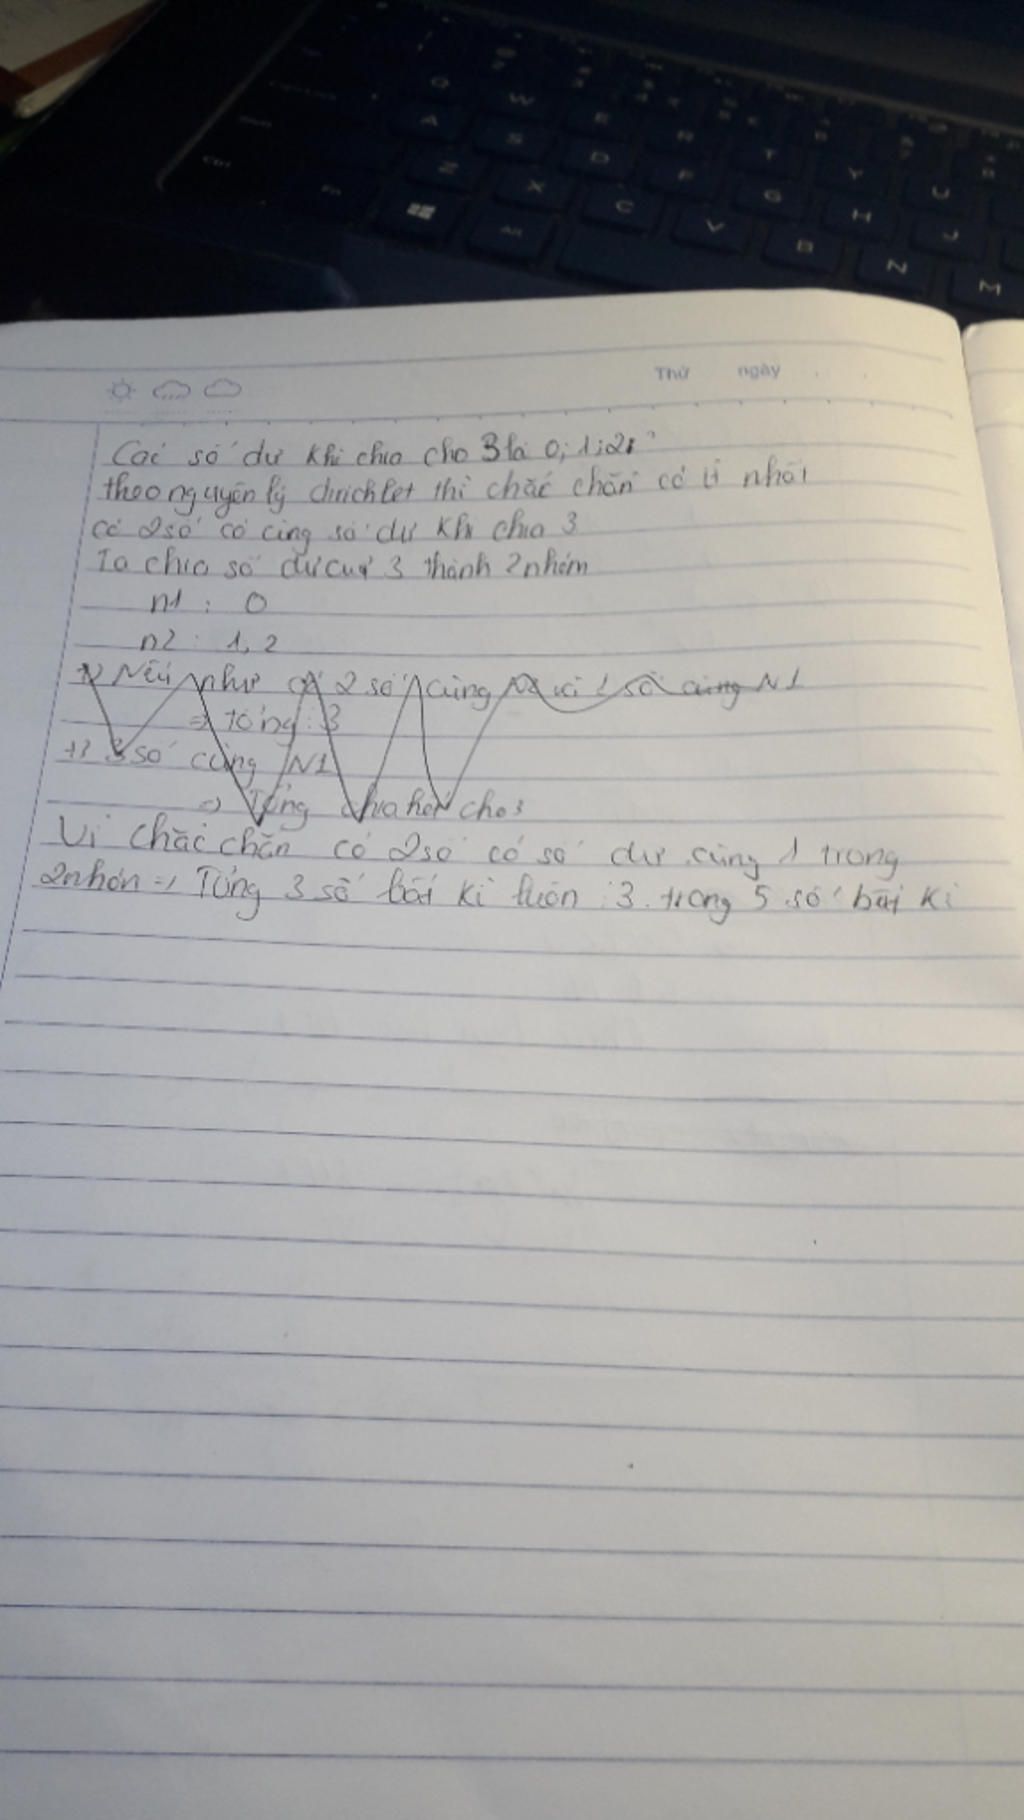 Q W E R T Y U
A S D F G H J
Z X C V B N M
Ctrl Fn Alt
Thứ ngày
Các số dư khi chia cho 3 là 0; 1; 2
theo nguyên lý dirichlet thì chắc chắn có ít nhất
có 2 số có cùng số dư khi chia 3
Ta chia số dư của 3 thành 2 nhóm
n1 : 0
n2 : 1, 2
Nếu như có 2 số cùng số cùng N1
=> tổng : 3
+) 3 số cùng N1
=> Tổng chia hết cho 3
Vì chắc chắn có 2 số có số dư cùng 1 trong
2 nhón => Tổng 3 số bất kì luôn : 3 trong 5 số bất kì